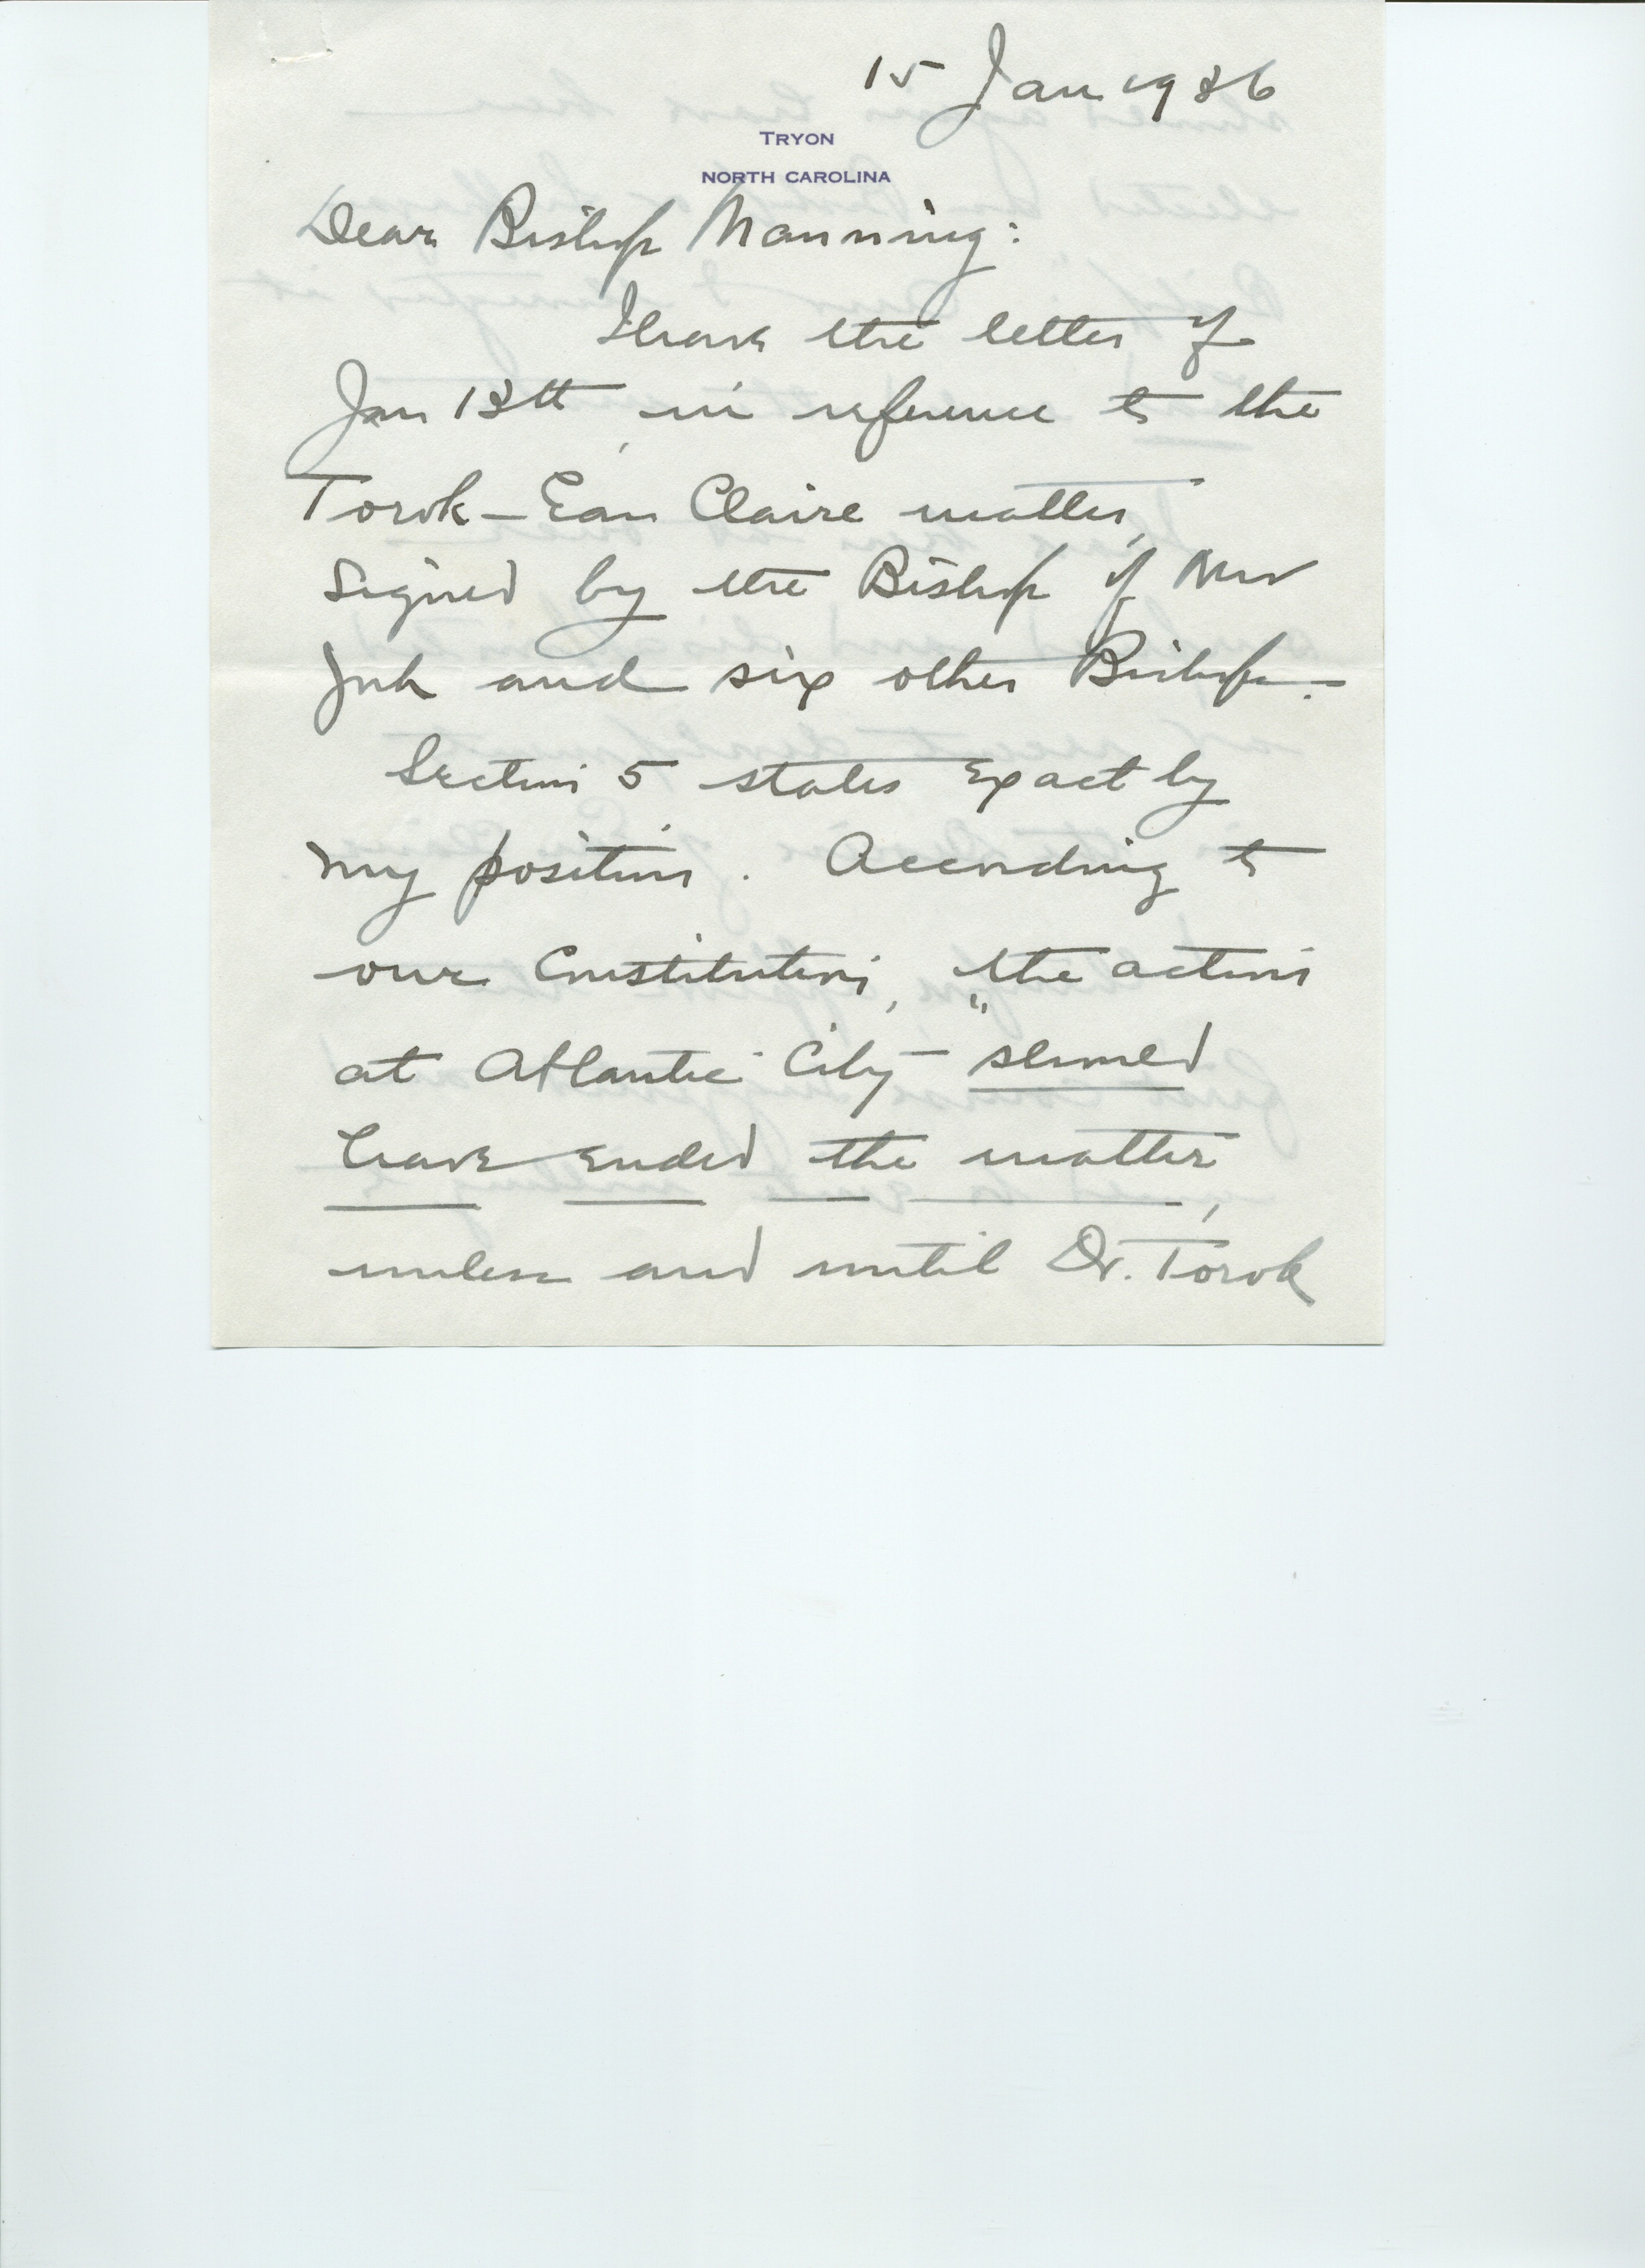 15 Jan 1936
TRYON
NORTH CAROLINA
Dear Bishop Manning:
I have the letter of
Jan 13th, in reference to the
Torok-Eau Claire matter,
signed by the Bishop of New
York and six other Bishops.-
Section 5 states exactly
my position. According to
our Constitution, "the action
at Atlantic City seemed
have ended the matter,
unless and until Dr. Torok